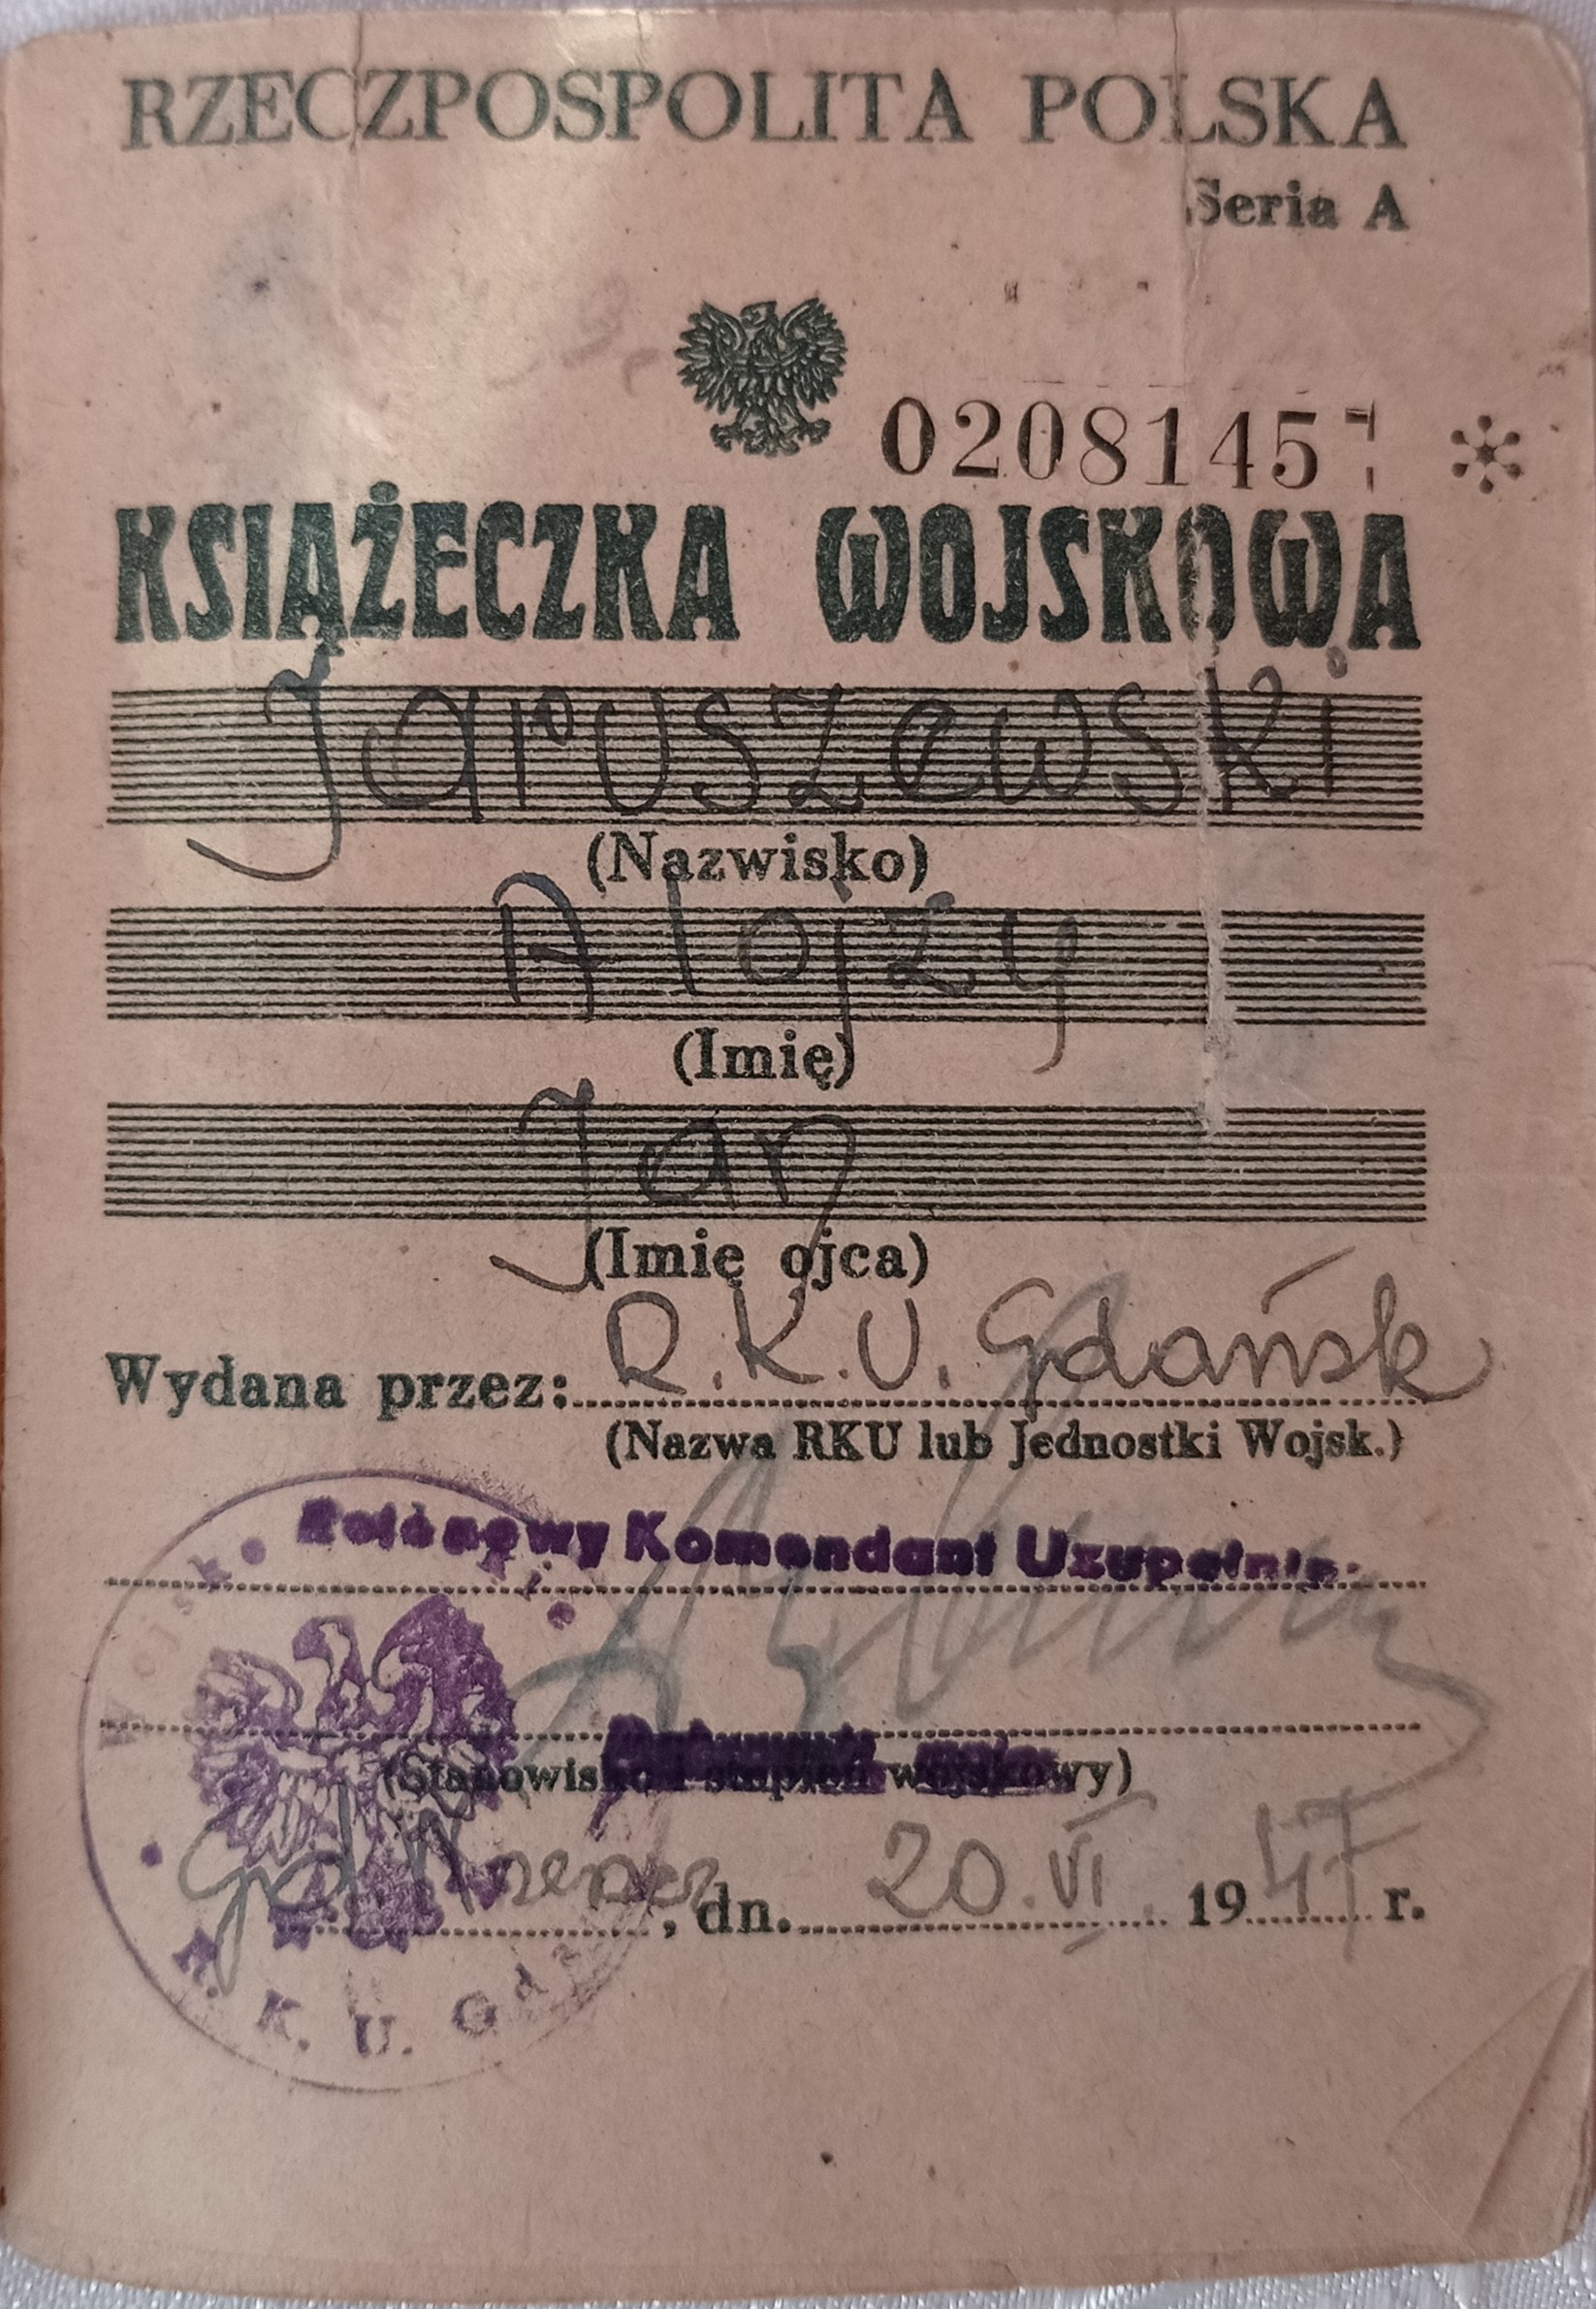 RZECZPOSPOLITA POLSKA
Seria A
02081457 *
KSIĄŻECZKA WOJSKOWA
Jaruszewski
(Nazwisko)
Alojzy
(Imię)
Jan
(Imię ojca)
Wydana przez: R.K.U. Gdańsk
(Nazwa RKU lub Jednostki Wojsk.)
Rejonowy Komendant Uzupełnień
(Stanowisko i stopień wojskowy)
, dn. 20.VI. 1947 r.
R. K. U. Gda